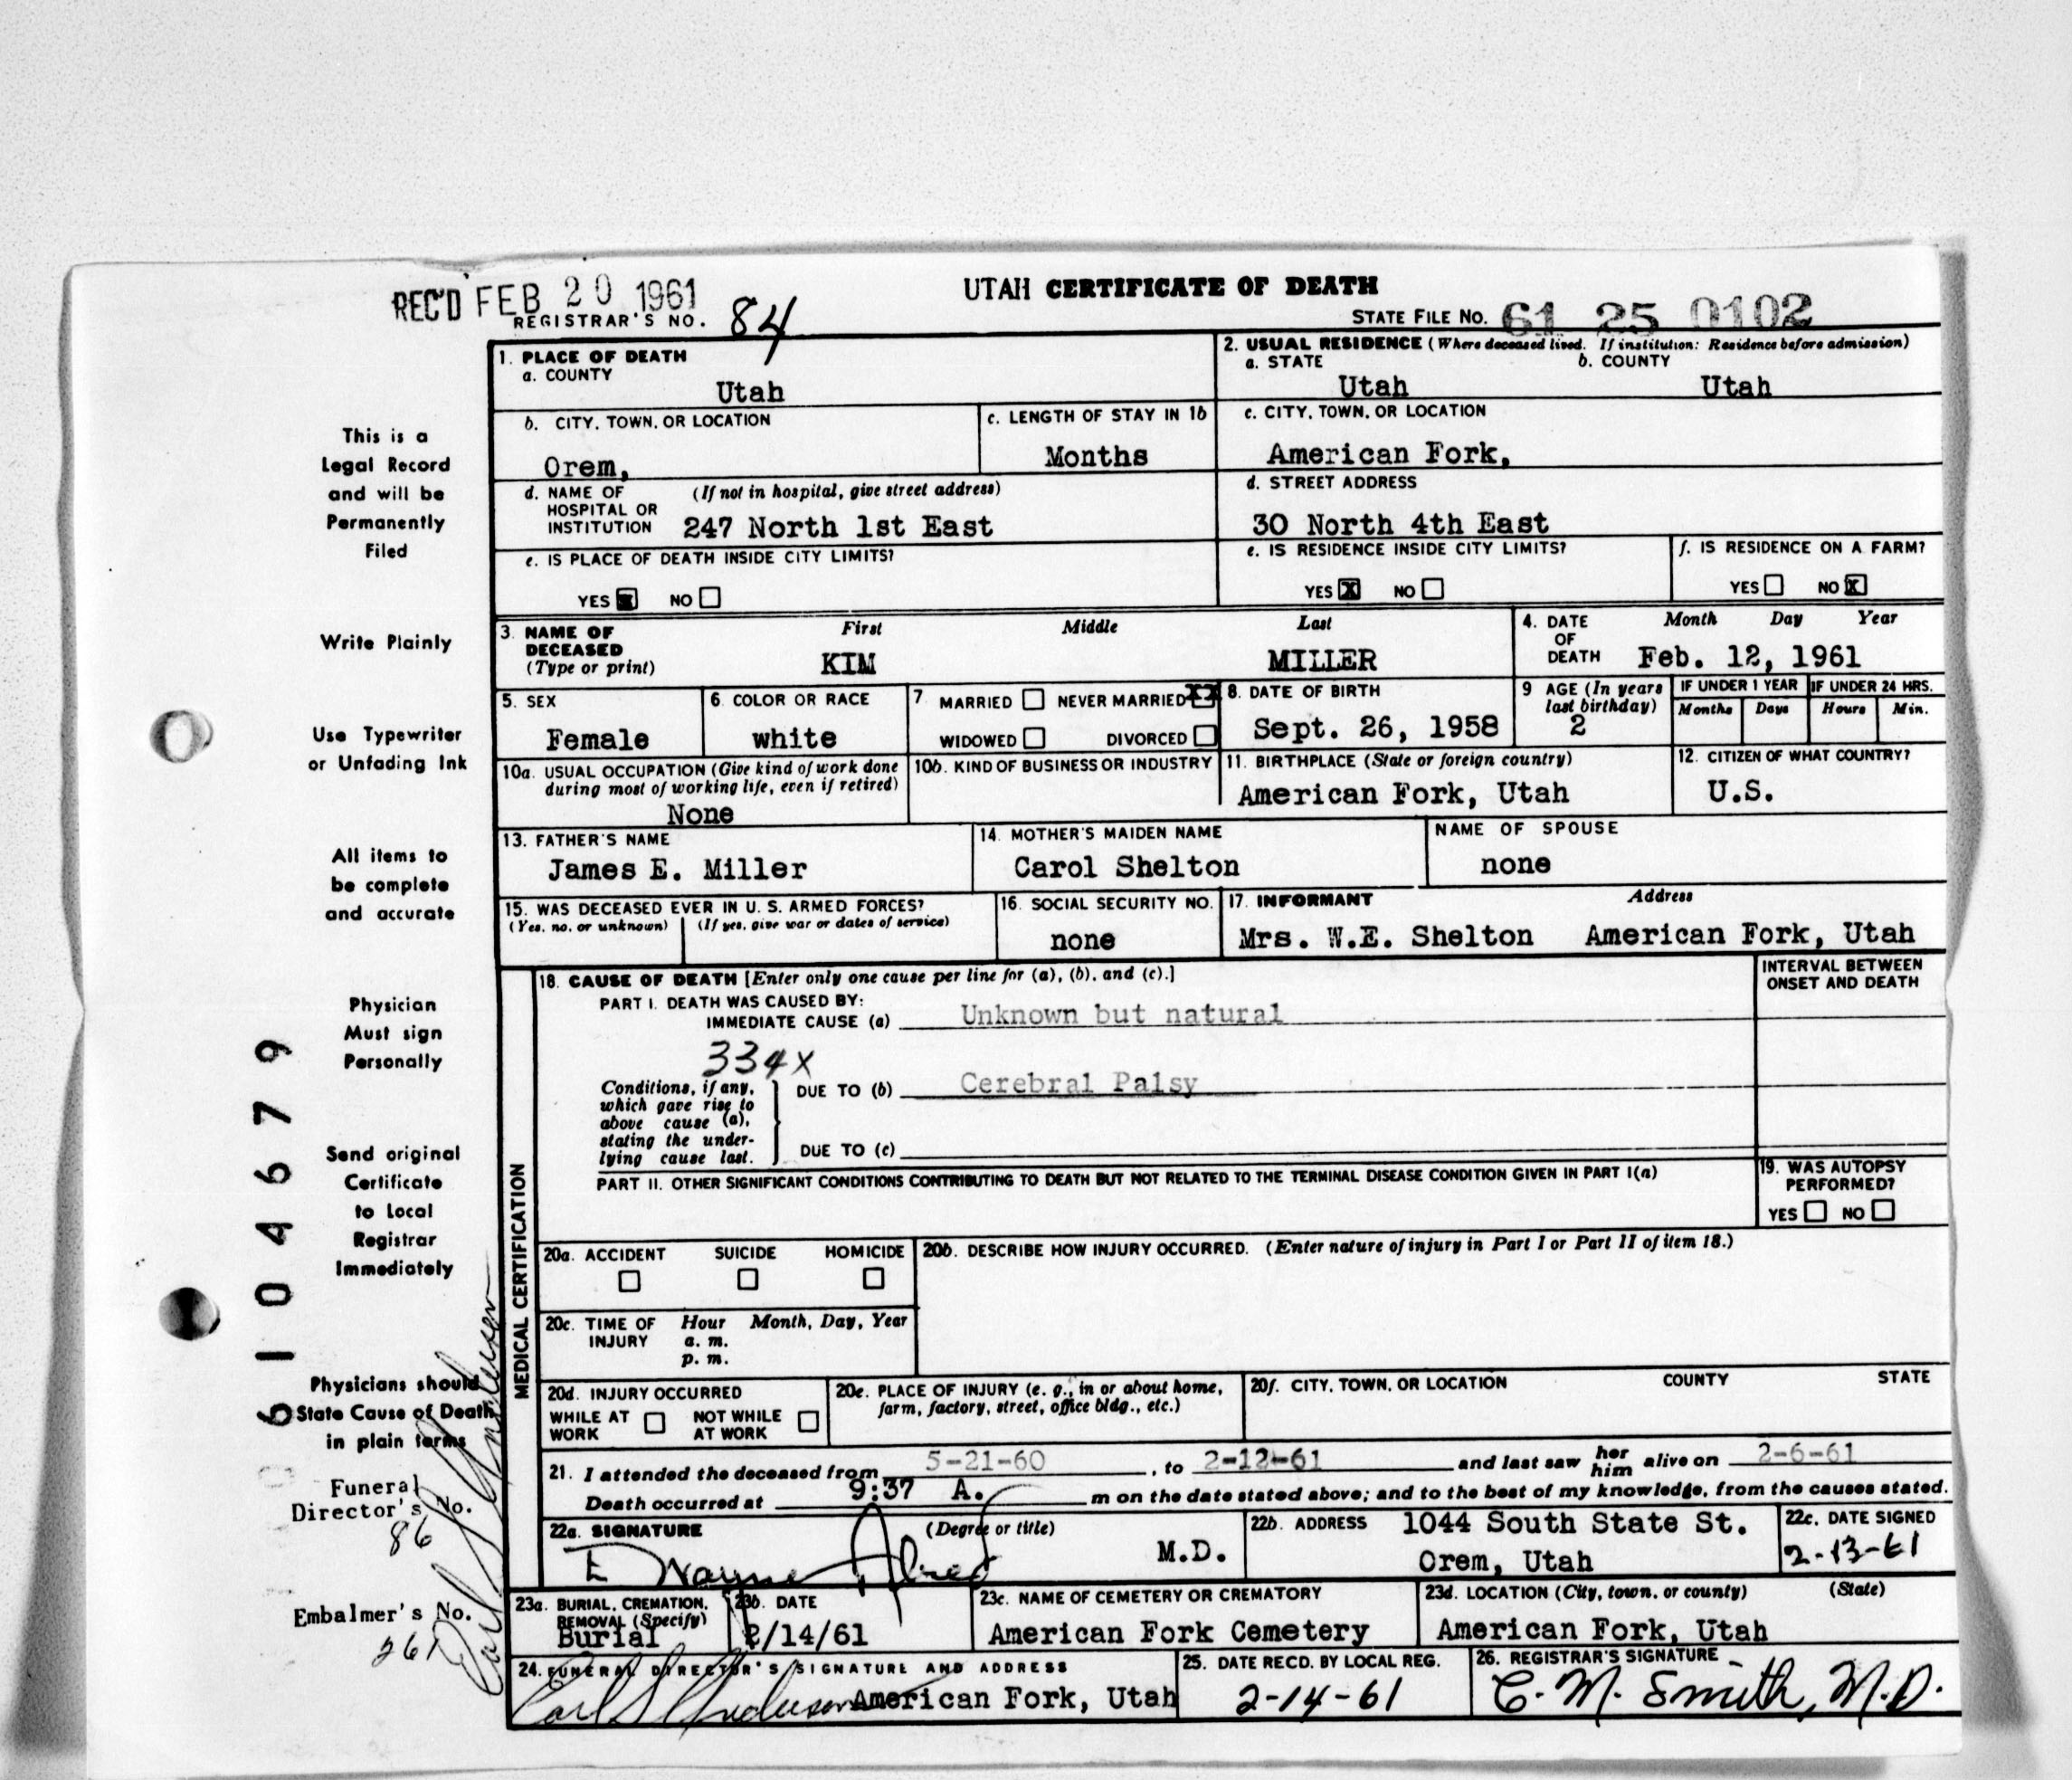 REC'D FEB 20 1961
UTAH CERTIFICATE OF DEATH
REGISTRAR'S NO. 84
STATE FILE NO. 61 25 0102
1. PLACE OF DEATH
a. COUNTY
Utah
2. USUAL RESIDENCE (Where deceased lived. If institution: Residence before admission)
a. STATE b. COUNTY
Utah Utah
b. CITY, TOWN, OR LOCATION
Orem,
c. LENGTH OF STAY IN 1b
Months
c. CITY, TOWN, OR LOCATION
American Fork,
d. NAME OF (If not in hospital, give street address)
HOSPITAL OR
INSTITUTION 247 North 1st East
d. STREET ADDRESS
30 North 4th East
e. IS PLACE OF DEATH INSIDE CITY LIMITS?
YES X NO
e. IS RESIDENCE INSIDE CITY LIMITS?
YES X NO
f. IS RESIDENCE ON A FARM?
YES NO X
3. NAME OF DECEASED
(Type or print)
First Middle Last
KIM MILLER
4. DATE OF DEATH
Month Day Year
Feb. 12, 1961
5. SEX
Female
6. COLOR OR RACE
white
7. MARRIED NEVER MARRIED XX
WIDOWED DIVORCED
8. DATE OF BIRTH
Sept. 26, 1958
9 AGE (In years
last birthday)
2
IF UNDER 1 YEAR
Months Days
IF UNDER 24 HRS.
Hours Min.
10a. USUAL OCCUPATION (Give kind of work done
during most of working life, even if retired)
None
10b. KIND OF BUSINESS OR INDUSTRY
11. BIRTHPLACE (State or foreign country)
American Fork, Utah
12. CITIZEN OF WHAT COUNTRY?
U.S.
13. FATHER'S NAME
James E. Miller
14. MOTHER'S MAIDEN NAME
Carol Shelton
NAME OF SPOUSE
none
15. WAS DECEASED EVER IN U. S. ARMED FORCES?
(Yes, no, or unknown) (If yes, give war or dates of service)
16. SOCIAL SECURITY NO.
none
17. INFORMANT Address
Mrs. W.E. Shelton American Fork, Utah
MEDICAL CERTIFICATION
18. CAUSE OF DEATH [Enter only one cause per line for (a), (b), and (c).]
INTERVAL BETWEEN
ONSET AND DEATH
PART I. DEATH WAS CAUSED BY:
IMMEDIATE CAUSE (a) Unknown but natural
334X
Conditions, if any,
which gave rise to
above cause (a),
stating the under-
lying cause last.
DUE TO (b) Cerebral Palsy
DUE TO (c)
PART II. OTHER SIGNIFICANT CONDITIONS CONTRIBUTING TO DEATH BUT NOT RELATED TO THE TERMINAL DISEASE CONDITION GIVEN IN PART I(a)
19. WAS AUTOPSY
PERFORMED?
YES NO
20a. ACCIDENT SUICIDE HOMICIDE
20b. DESCRIBE HOW INJURY OCCURRED. (Enter nature of injury in Part I or Part II of item 18.)
20c. TIME OF INJURY
Hour Month, Day, Year
a. m.
p. m.
20d. INJURY OCCURRED
WHILE AT WORK NOT WHILE AT WORK
20e. PLACE OF INJURY (e. g., in or about home,
farm, factory, street, office bldg., etc.)
20f. CITY, TOWN, OR LOCATION COUNTY STATE
21. I attended the deceased from 5-21-60, to 2-12-61 and last saw her him alive on 2-6-61
Death occurred at 9:37 A. m on the date stated above; and to the best of my knowledge, from the causes stated.
22a. SIGNATURE (Degree or title)
E Wayne Allred M.D.
22b. ADDRESS 1044 South State St.
Orem, Utah
22c. DATE SIGNED
2-13-61
23a. BURIAL, CREMATION,
REMOVAL (Specify)
Burial
23b. DATE
2/14/61
23c. NAME OF CEMETERY OR CREMATORY
American Fork Cemetery
23d. LOCATION (City, town, or county) (State)
American Fork, Utah
24. FUNERAL DIRECTOR'S SIGNATURE AND ADDRESS
Earl S Anderson American Fork, Utah
25. DATE RECD. BY LOCAL REG.
2-14-61
26. REGISTRAR'S SIGNATURE
C. M. Smith, M.D.
This is a
Legal Record
and will be
Permanently
Filed
Write Plainly
Use Typewriter
or Unfading Ink
All items to
be complete
and accurate
Physician
Must sign
Personally
Send original
Certificate
to Local
Registrar
Immediately
Physicians should
State Cause of Death
in plain terms
Funeral
Director's No.
86
Embalmer's No.
261
Earl S Anderson
6104679